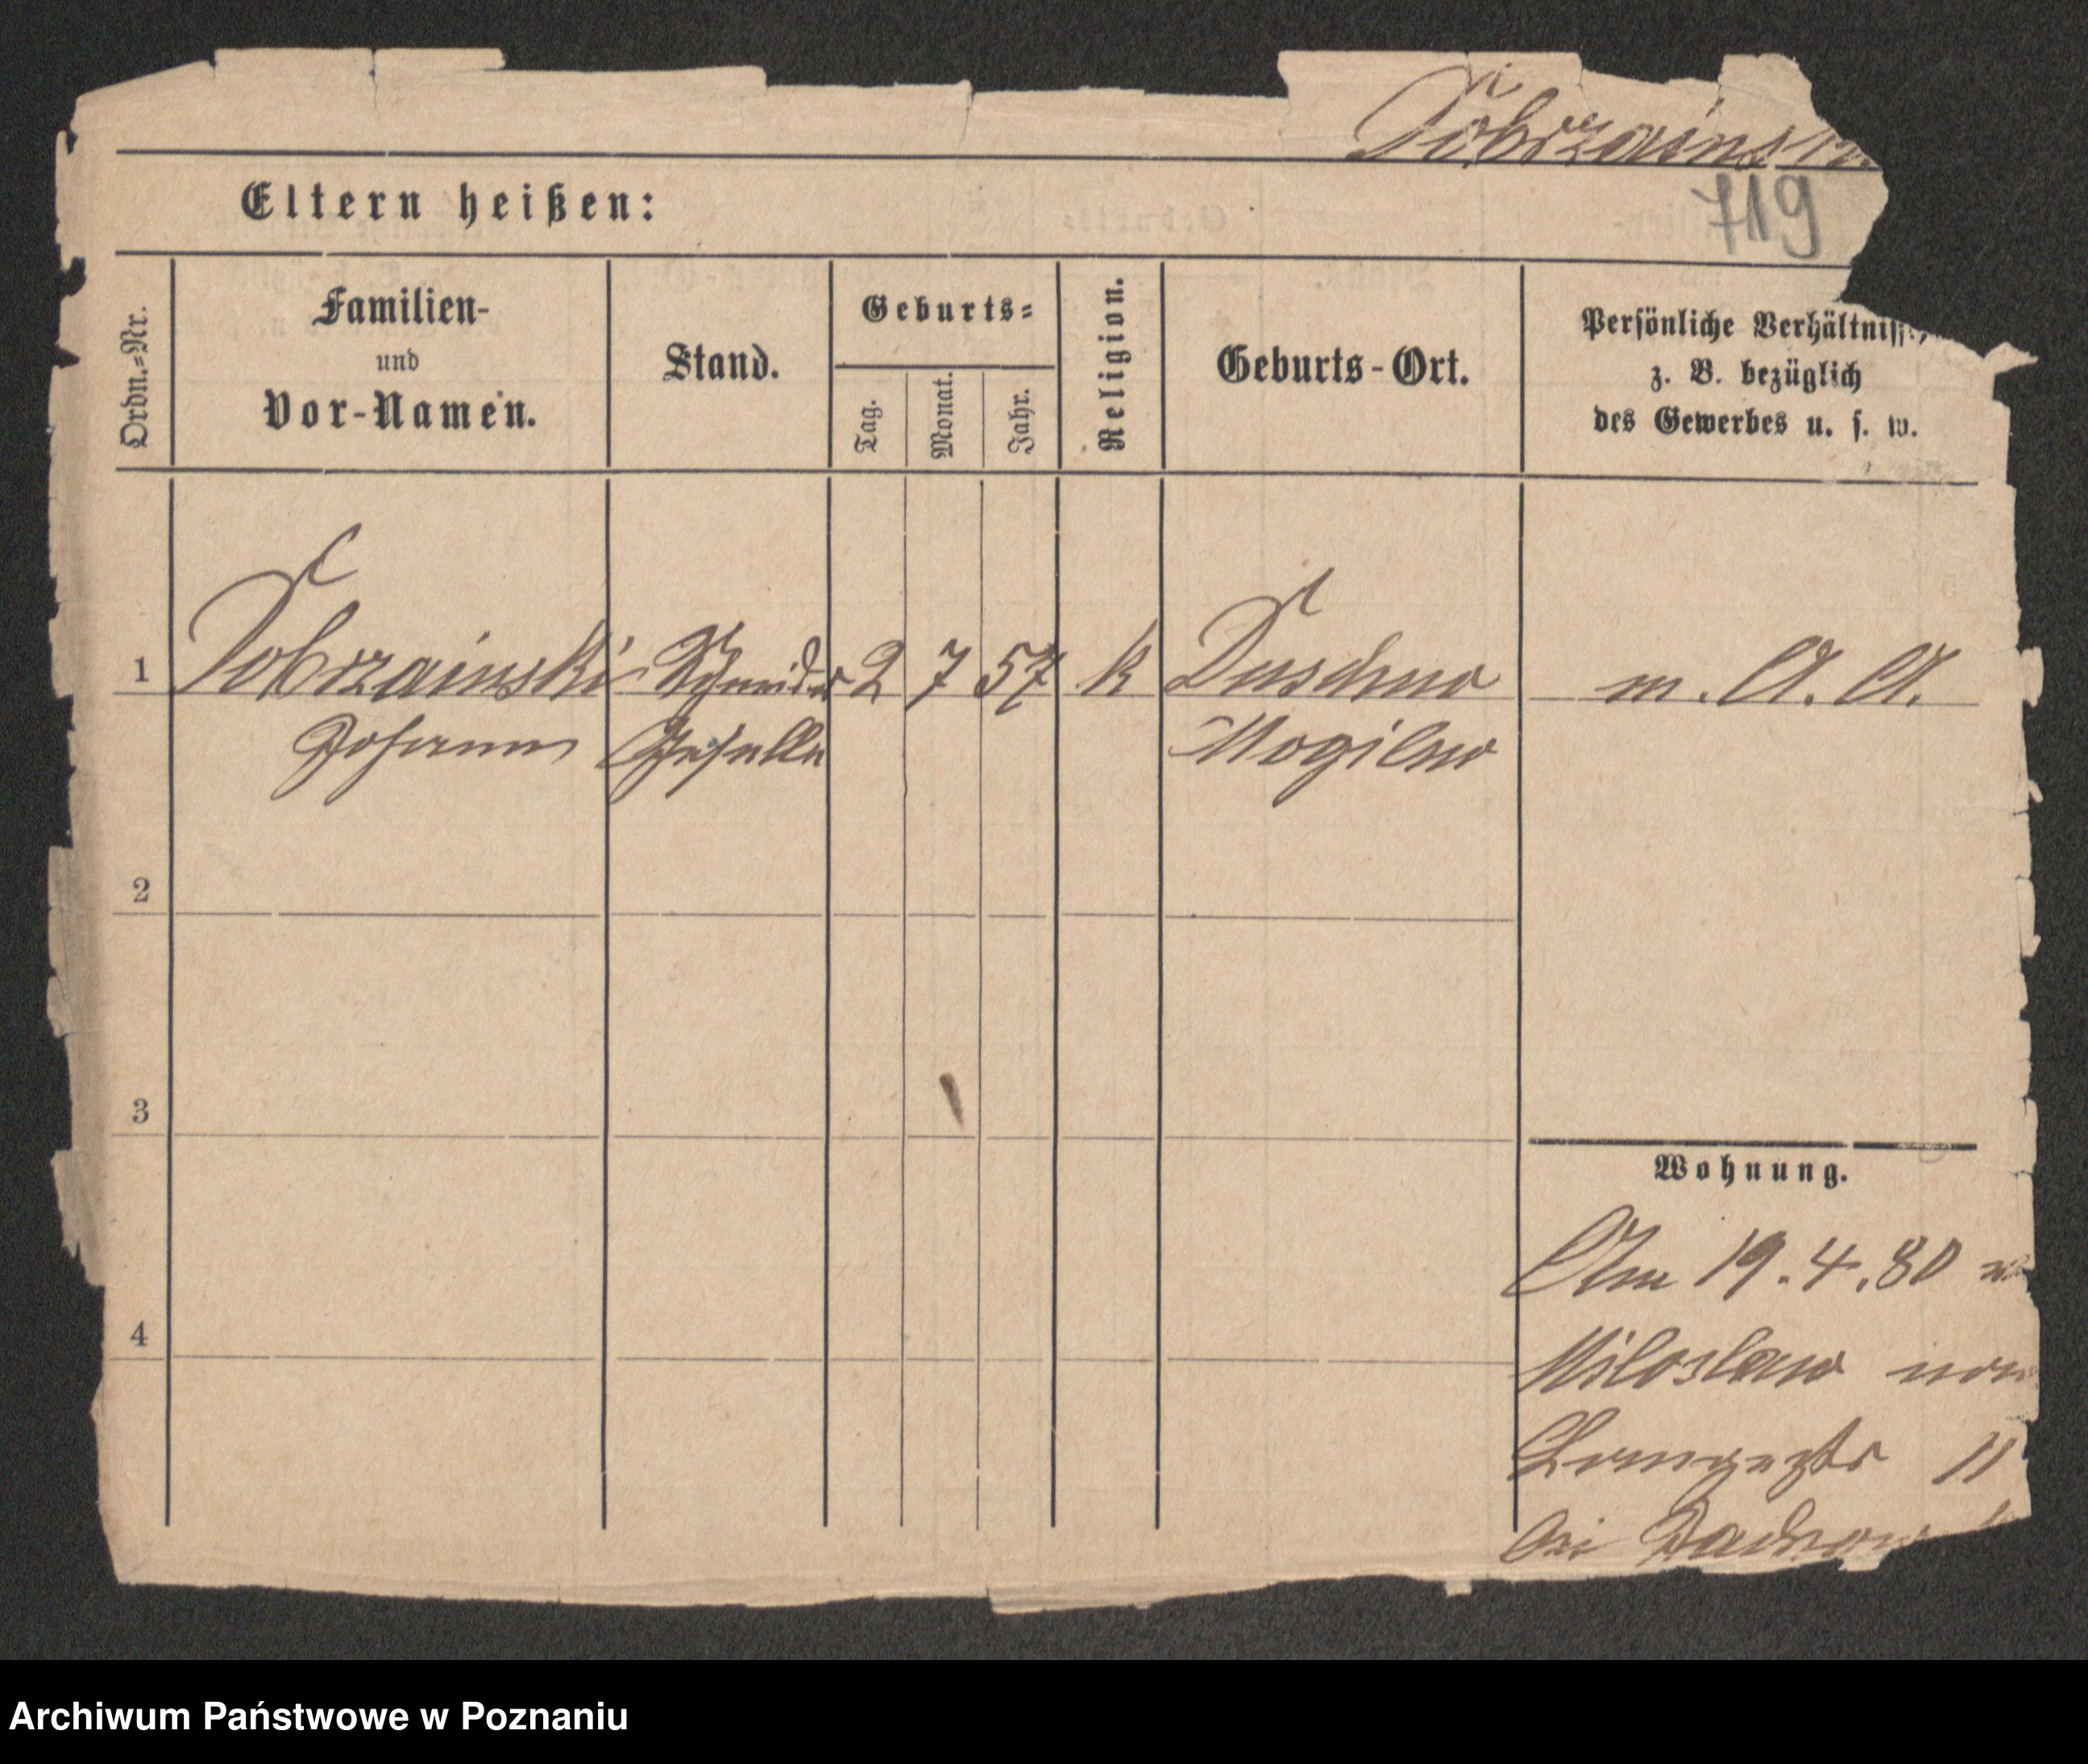 Dobrzainski
719
Eltern heißen:
Ordn.=Nr.
Familien-
und
Vor-Namen.
Stand.
Geburts=
Tag.
Monat.
Jahr.
Religion.
Geburts-Ort.
Persönliche Verhältnisse,
z. B. bezüglich
des Gewerbes u. s. w.
1 Dobrzainski Schneider 2 7 57 k Duschno m. A. A.
Johann Geselle Mogilno
2
3
Wohnung.
Am 19.4.80
4
Miloslaw von
11
bei
Archiwum Państwowe w Poznaniu